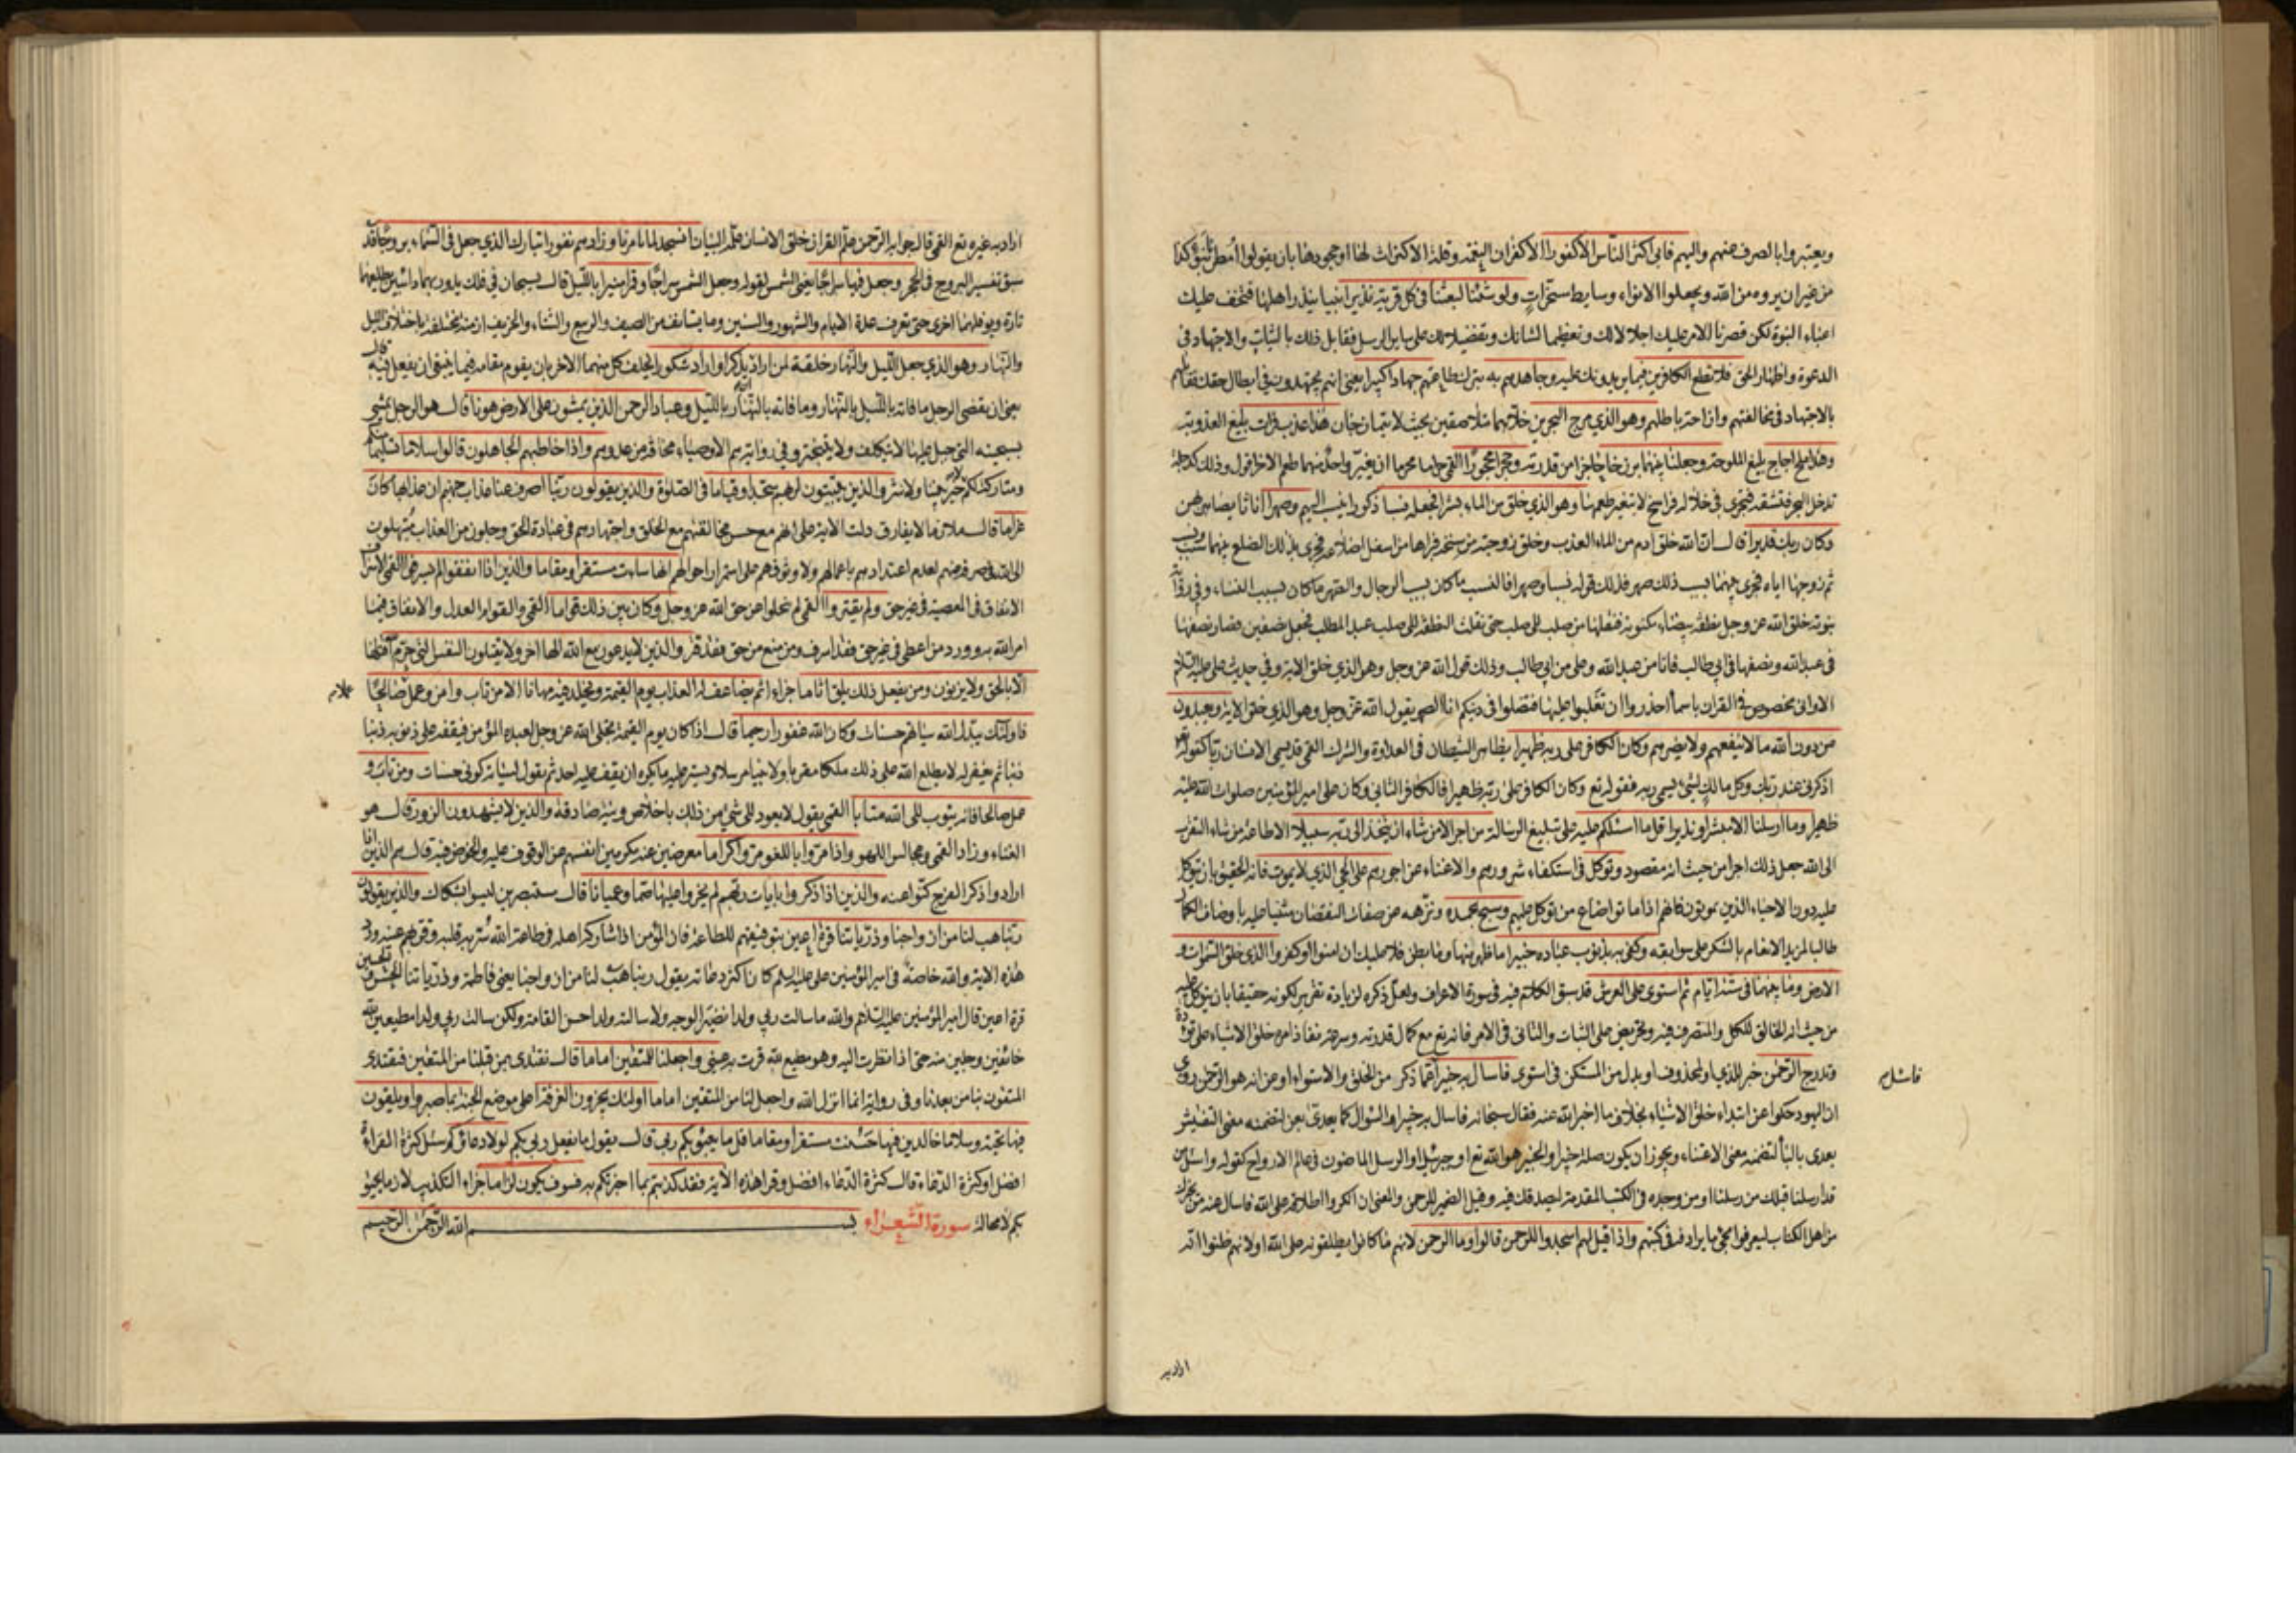 ويعتبروا بالصرف عنهم واليهم فابى اكثر الناس الا كفورا الا كفران النعمة وقلة الاكتراث لها او جحودها بان يقولوا امطرنا بنوء كذا
من غير ان يروه من الله ويجعلوا الانواء وسايط مسخرات ولو شئنا لبعثنا في كل قرية نذيرا نبيا ينذر اهلها فتخف عليك
اعباء النبوة لكن قصرنا الامر عليك اجلالا لك وتعظيما لشانك وتفضيلا لك على ساير الرسل فقابل ذلك بالثبات والاجتهاد في
الدعوة واظهار الحق فلا تطع الكافرين فيما يريدونك عليه وجاهدهم به بترك طاعتهم جهادا كبيرا يعني انهم يجتهدون في ابطال حقك فقابلهم
بالاجتهاد في مخالفتهم وازاحة باطلهم وهو الذي مرج البحرين خلاهما متلاصقين بحيث لا يتمازجان هذا عذب فرات بليغ العذوبة
وهذا ملح اجاج بليغ الملوحة وجعل بينهما برزخا حاجزا من قدرته وحجرا محجورا القمي حراما محرما ان يغير واحد منهما طعم الاخر اقول وذلك كدجلة
تدخل البحر فتشقه فتجري في خلاله فراسخ لا يتغير طعمها وهو الذي خلق من الماء بشرا فجعله نسبا ذكورا ينسب اليهم وصهرا اناثا يصاهر بهن
وكان ربك قديرا قال ان الله خلق ادم من الماء العذب وخلق زوجته من سنخه فبراها من اسفل اضلاعه فجرى بذلك الضلع بينهما سبب ونسب
ثم زوجها اياه فجرى بينهما بسبب ذلك صهر فذلك قوله نسبا وصهرا فالنسب ما كان بسبب الرجال والصهر ما كان بسبب النساء وفي رواية
نبوية خلق الله عز وجل نطفة بيضاء مكنونة فنقلها من صلب الى صلب حتى نقلت النطفة الى صلب عبد المطلب فجعل نصفين فصار نصفها
في عبد الله ونصفها في ابي طالب فانا من عبد الله وعلي من ابي طالب وذلك قول الله عز وجل وهو الذي خلق الاية وفي حديث علي عليه السلام
الا واني مخصوص في القران باسماء احذروا ان تغلبوا عليها فتضلوا في دينكم انا الصهر يقول الله عز وجل وهو الذي خلق الاية ويعبدون
من دون الله ما لا ينفعهم ولا يضرهم وكان الكافر على ربه ظهيرا يظاهر الشيطان في العداوة والشرك القمي قد يسمى الانسان ربا كقوله تع
اذكرني عند ربك وكل مالك لشيء يسمى ربه فقوله تع وكان الكافر على ربه ظهيرا فالكافر الثاني وكان على امير المؤمنين صلوات الله عليه
ظهيرا وما ارسلناك الا مبشرا ونذيرا قل ما اسئلكم عليه على تبليغ الرسالة من اجر الا من شاء ان يتخذ الى ربه سبيلا الا طاعة من شاء التقرب
الى الله جعل ذلك اجرا من حيث انه مقصود وتوكل في استكفاء شرورهم والاغناء عن اجورهم على الحي الذي لا يموت فانه الحقيق بان يتوكل
عليه دون الاحياء الذين يموتون فانهم اذا ماتوا ضاع من توكل عليهم وسبح بحمده ونزهه عن صفات النقصان مثنيا عليه باوصاف الكمال
طالبا لمزيد الانعام بالشكر على سوابقه وكفى به بذنوب عباده خبيرا ما ظهر منها وما بطن فلا عليك ان امنوا او كفروا الذي خلق السموات و
الارض وما بينهما في ستة ايام ثم استوى على العرش قد سبق الكلام فيه في سورة الاعراف ولعل ذكره لزيادة تقرير لكونه حقيقا بان يتوكل عليه
من حيث انه الخالق للكل والمتصرف فيه وتحريض على الثبات والتاني في الامر فانه تع مع كمال قدرته وسرعة نفاذ امره خلق الاشياء على تؤدة
وتدرج الرحمن خبر للذي او لمحذوف او بدل من المستكن في استوى فاسال به خبيرا عما ذكر من الخلق والاستواء او عن انه هو الرحمن روي
فاسئل
ان اليهود حكوا عن ابتداء خلق الاشياء بخلاف ما اخبر الله عنه فقال سبحانه فاسال به خبيرا والسؤال كما يعدى بعن لتضمنه معنى التفتيش
يعدى بالباء لتضمنه معنى الاعتناء ويجوز ان يكون صلة خبيرا والخبير هو الله تع او جبرئيل او الرسل الماضون في عالم الارواح كقوله واسئل من
قد ارسلنا قبلك من رسلنا او من وجده في الكتب المتقدمة ليصدقك فيه وقيل الضمير للرحمن والمعنى ان انكروا اطلاقه على الله فاسال عنه من يخبرك
من اهل الكتاب ليعرفوا مجئ ما يرادفه في كتبهم واذا قيل لهم اسجدوا للرحمن قالوا وما الرحمن لانهم ما كانوا يطلقونه على الله او لانهم ظنوا انه
اراد به
اراد به غيره تع القمي قال جوابه الرحمن علم القران خلق الانسان علمه البيان انسجد لما تامرنا وزادهم نفورا تبارك الذي جعل في السماء بروجا قد
سبق تفسير البروج في الحجر وجعل فيها سراجا يعني الشمس لقوله وجعل الشمس سراجا وقمرا منيرا بالليل قال يسبحان في فلك يدور بهما دائبين يطلعهما
تارة ويوفلهما اخرى حتى تعرف عدة الايام والشهور والسنين وما يستانف من الصيف والربيع والشتاء والخريف ازمنة مختلفة باختلاف الليل
والنهار وهو الذي جعل الليل والنهار خلفة لمن اراد ان يذكر او اراد شكورا يخلف كل منهما الاخر بان يقوم مقامه فيما ينبغي ان يفعل فيه قال
يعني ان يقضي الرجل ما فاته بالليل بالنهار وما فاته بالنهار بالليل وعباد الرحمن الذين يمشون على الارض هونا قال هو الرجل يمشي
بسجيته التي جبل عليها لا يتكلف ولا يتبختر وفي رواية هم الاوصياء مخافة من عدوهم واذا خاطبهم الجاهلون قالوا سلاما تسليما منكم
ومتاركة لكم لا خير بيننا ولا شر والذين يبيتون لربهم سجدا وقياما في الصلوة والذين يقولون ربنا اصرف عنا عذاب جهنم ان عذابها كان
غراما قال ملازما لا يفارق دلت الاية على انهم مع حسن مخالقتهم مع الخلق واجتهادهم في عبادة الحق وجلون من العذاب مبتهلون
الى الله في صرفه عنهم لعدم اعتدادهم باعمالهم ولا وثوقهم على استمرار احوالهم انها ساءت مستقرا ومقاما والذين اذا انفقوا لم يسرفوا القمي الاسراف
الانفاق في المعصية في غير حق ولم يقتروا القمي لم يبخلوا عن حق الله عز وجل وكان بين ذلك قواما القمي والقوام العدل والانفاق فيما
امر الله به وورد من اعطى في غير حق فقد اسرف ومن منع من حق فقد قتر والذين لا يدعون مع الله الها اخر ولا يقتلون النفس التي حرم الله
الا بالحق ولا يزنون ومن يفعل ذلك يلق اثاما جزاء اثم يضاعف له العذاب يوم القيمة ويخلد فيه مهانا الا من تاب وامن وعمل صالحا
فاولئك يبدل الله سياتهم حسنات وكان الله غفورا رحيما قال اذا كان يوم القيمة تجلى الله عز وجل لعبده المؤمن فيقفه على ذنوبه ذنبا
ذنبا ثم يغفر له لا يطلع الله على ذلك ملكا مقربا ولا نبيا مرسلا ويستر عليه ما يكره ان يقف عليه احد ثم يقول لسيئاته كوني حسنات ومن تاب و
عمل صالحا فانه يتوب الى الله متابا القمي يقول لا يعود الى شيء من ذلك باخلاص ونية صادقة والذين لا يشهدون الزور قال هو
الغناء وزاد القمي ومجالس اللهو واذا مروا باللغو مروا كراما معرضين عنه مكرمين انفسهم عن الوقوف عليه والخوض فيه قال هم الذين اذا
ارادوا ذكر الفرج كنوا عنه والذين اذا ذكروا بايات ربهم لم يخروا عليها صما وعميانا قال مستبصرين ليسوا بشكاك والذين يقولون
ربنا هب لنا من ازواجنا وذرياتنا قرة اعين بتوفيقهم للطاعة فان المؤمن اذا شاركه اهله في طاعة الله سر بهم قلبه وقرت بهم عينه ورد
هذه الاية والله خاصة في امير المؤمنين علي عليه السلم كان اكثر دعائه يقول ربنا هب لنا من ازواجنا يعني فاطمة وذرياتنا الحسن والحسين
قرة اعين قال امير المؤمنين عليه السلام والله ما سالت ربي ولدا نضير الوجه ولا سالته ولدا حسن القامة ولكن سالت ربي ولدا مطيعين لله
خائفين وجلين منه حتى اذا نظرت اليه وهو مطيع لله قرت به عيني واجعلنا للمتقين اماما قال نقتدي بمن قبلنا من المتقين فيقتدي
المتقون بنا من بعدنا وفي رواية انما انزل الله واجعل لنا من المتقين اماما اولئك يجزون الغرفة اعلى موضع الجنة بما صبروا ويلقون
فيها تحية وسلاما خالدين فيها حسنت مستقرا ومقاما قل ما يعبؤ بكم ربي قال يقول ما يفعل ربي بكم لولا دعاؤكم سئل كثرة القراءة
افضل او كثرة الدعاء قال كثرة الدعاء افضل وقرا هذه الاية فقد كذبتم بما اخبرتكم به فسوف يكون لزاما جزاء التكذيب لازما يحيق
بكم لا محالة سورة الشعراء بسم الله الرحمن الرحيم